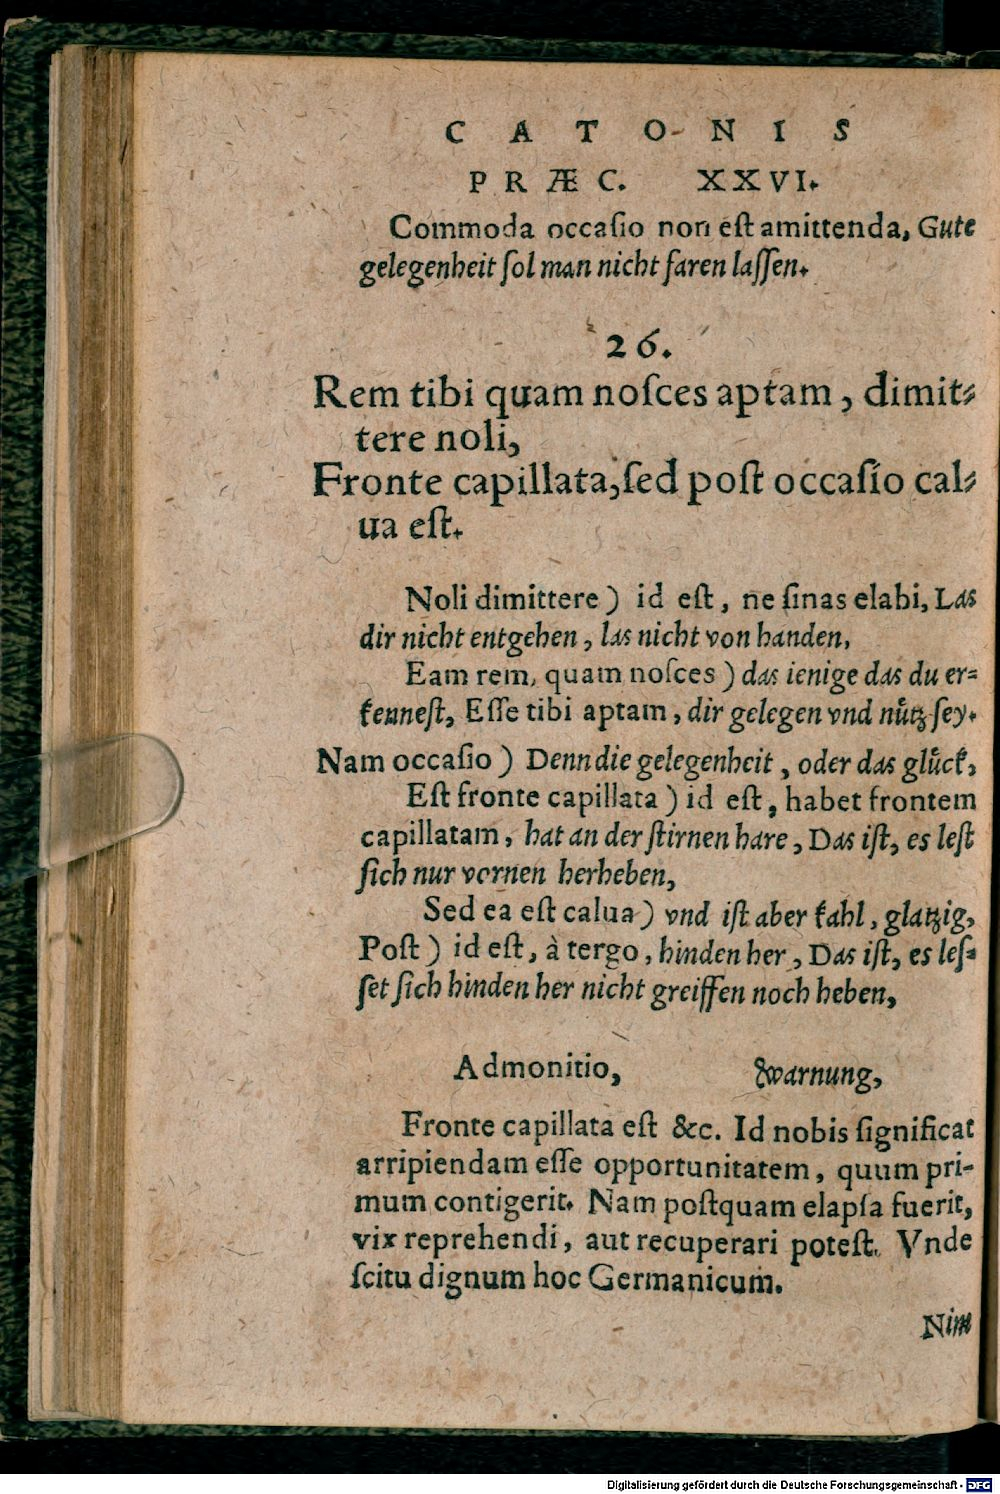 CATONIS
PRÆC. XXVI.
Commoda occaſio non eſt amittenda, Gute
gelegenheit ſol man nicht faren laſſen.
26.
Rem tibi quam noſces aptam, dimit⸗
tere noli,
Fronte capillata, ſed poſt occaſio cal⸗
ua eſt.
Noli dimittere) id eſt, ne ſinas elabi, Las
dir nicht entgehen, las nicht von handen,
Eam rem, quam noſces) das ienige das du er⸗
kenneſt, Eſſe tibi aptam, dir gelegen vnd nuͤtz ſey.
Nam occaſio) Denn die gelegenheit, oder das gluͤck,
Eſt fronte capillata) id eſt, habet frontem
capillatam, hat an der ſtirnen hare, Das iſt, es leſt
ſich nur vornen herheben,
Sed ea eſt calua) vnd iſt aber kahl, glatzig,
Poſt) id eſt, à tergo, hinden her, Das iſt, es leſ⸗
ſet ſich hinden her nicht greiffen noch heben,
Admonitio, Warnung,
Fronte capillata eſt &c. Id nobis ſignificat
arripiendam eſſe opportunitatem, quum pri-
mum contigerit. Nam poſtquam elapſa fuerit,
vix reprehendi, aut recuperari poteſt. Vnde
ſcitu dignum hoc Germanicum.
Nim
Digitalisierung gefördert durch die Deutsche Forschungsgemeinschaft - DFG